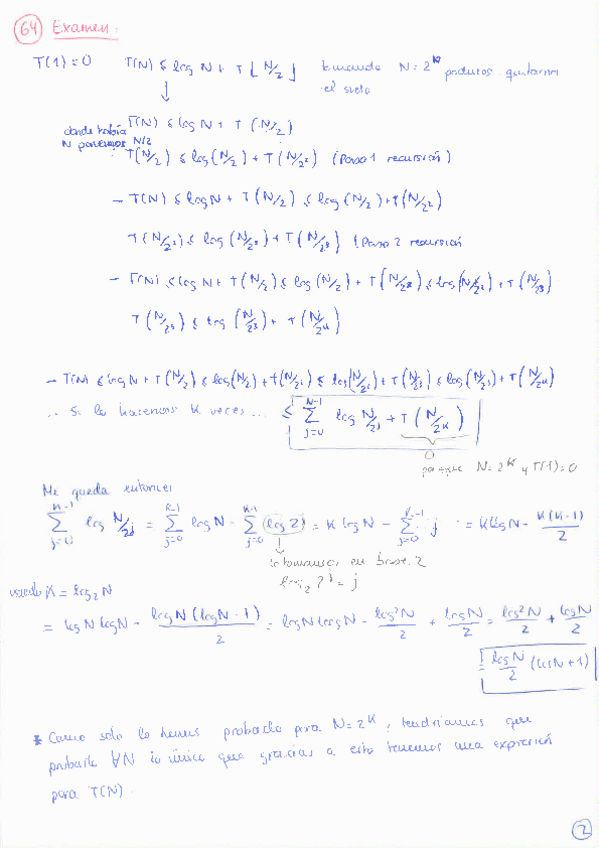 64 Examen:
T(1)=0 T(N) ≤ log N + T ⌊N/2⌋ tomando N=2^K podemos quitarnos
el suelo
↓
T(N) ≤ log N + T (N/2)
donde había
N ponemos N/2
T(N/2) ≤ log(N/2) + T(N/2²) (Paso 1 recursión)
- T(N) ≤ log N + T(N/2) ≤ log(N/2) + T(N/2²)
T(N/2²) ≤ log(N/2²) + T(N/2³) (Paso 2 recursión
- T(N) ≤ log N + T(N/2) ≤ log(N/2) + T(N/2²) ≤ log(N/2²) + T(N/2³)
T(N/2³) ≤ log(N/2³) + T(N/2⁴)
- T(N) ≤ log N + T(N/2) ≤ log(N/2) + T(N/2²) ≤ log(N/2²) + T(N/2³) ≤ log(N/2³) + T(N/2⁴)
... Si lo hacemos K veces ... ≤ ∑_{j=0}^{K-1} log N/2^j + T(N/2^K)
0
porque N=2^K y T(1)=0
Me queda entonces
∑_{j=0}^{K-1} log N/2^j = ∑_{j=0}^{K-1} log N - ∑_{j=0}^{K-1} log 2^j = K log N - ∑_{j=0}^{K-1} j = K log N - K(K-1)/2
↓
tomamos en base 2
log₂ 2^j = j
usando K = log₂ N
= log N log N - log N (log N - 1)/2 = log N log N - log² N/2 + log N/2 = log² N/2 + log N/2
= log N/2 (log N + 1)
* Como solo lo hemos probado para N=2^K, tendríamos que
probarlo ∀N lo único que gracias a esto tenemos una expresión
para T(N).
2